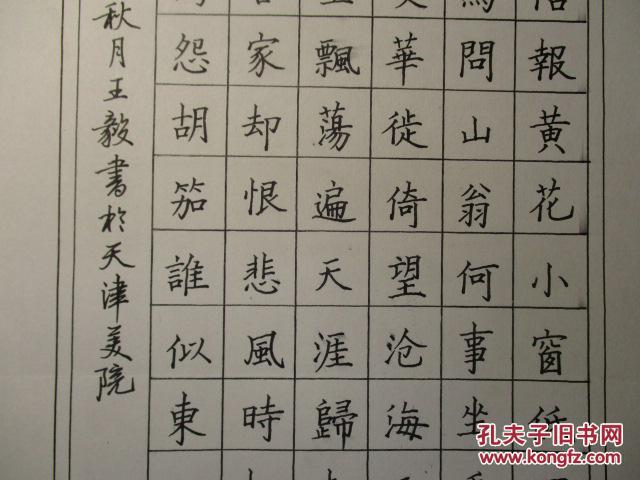 報黄花小窗
問山翁何事坐
華徙倚望沧海
飄蕩遍天涯歸
家却恨悲風時
怨胡笳誰似東
秋月王毅書於天津美院
孔夫子旧书网
www.kongfz.com